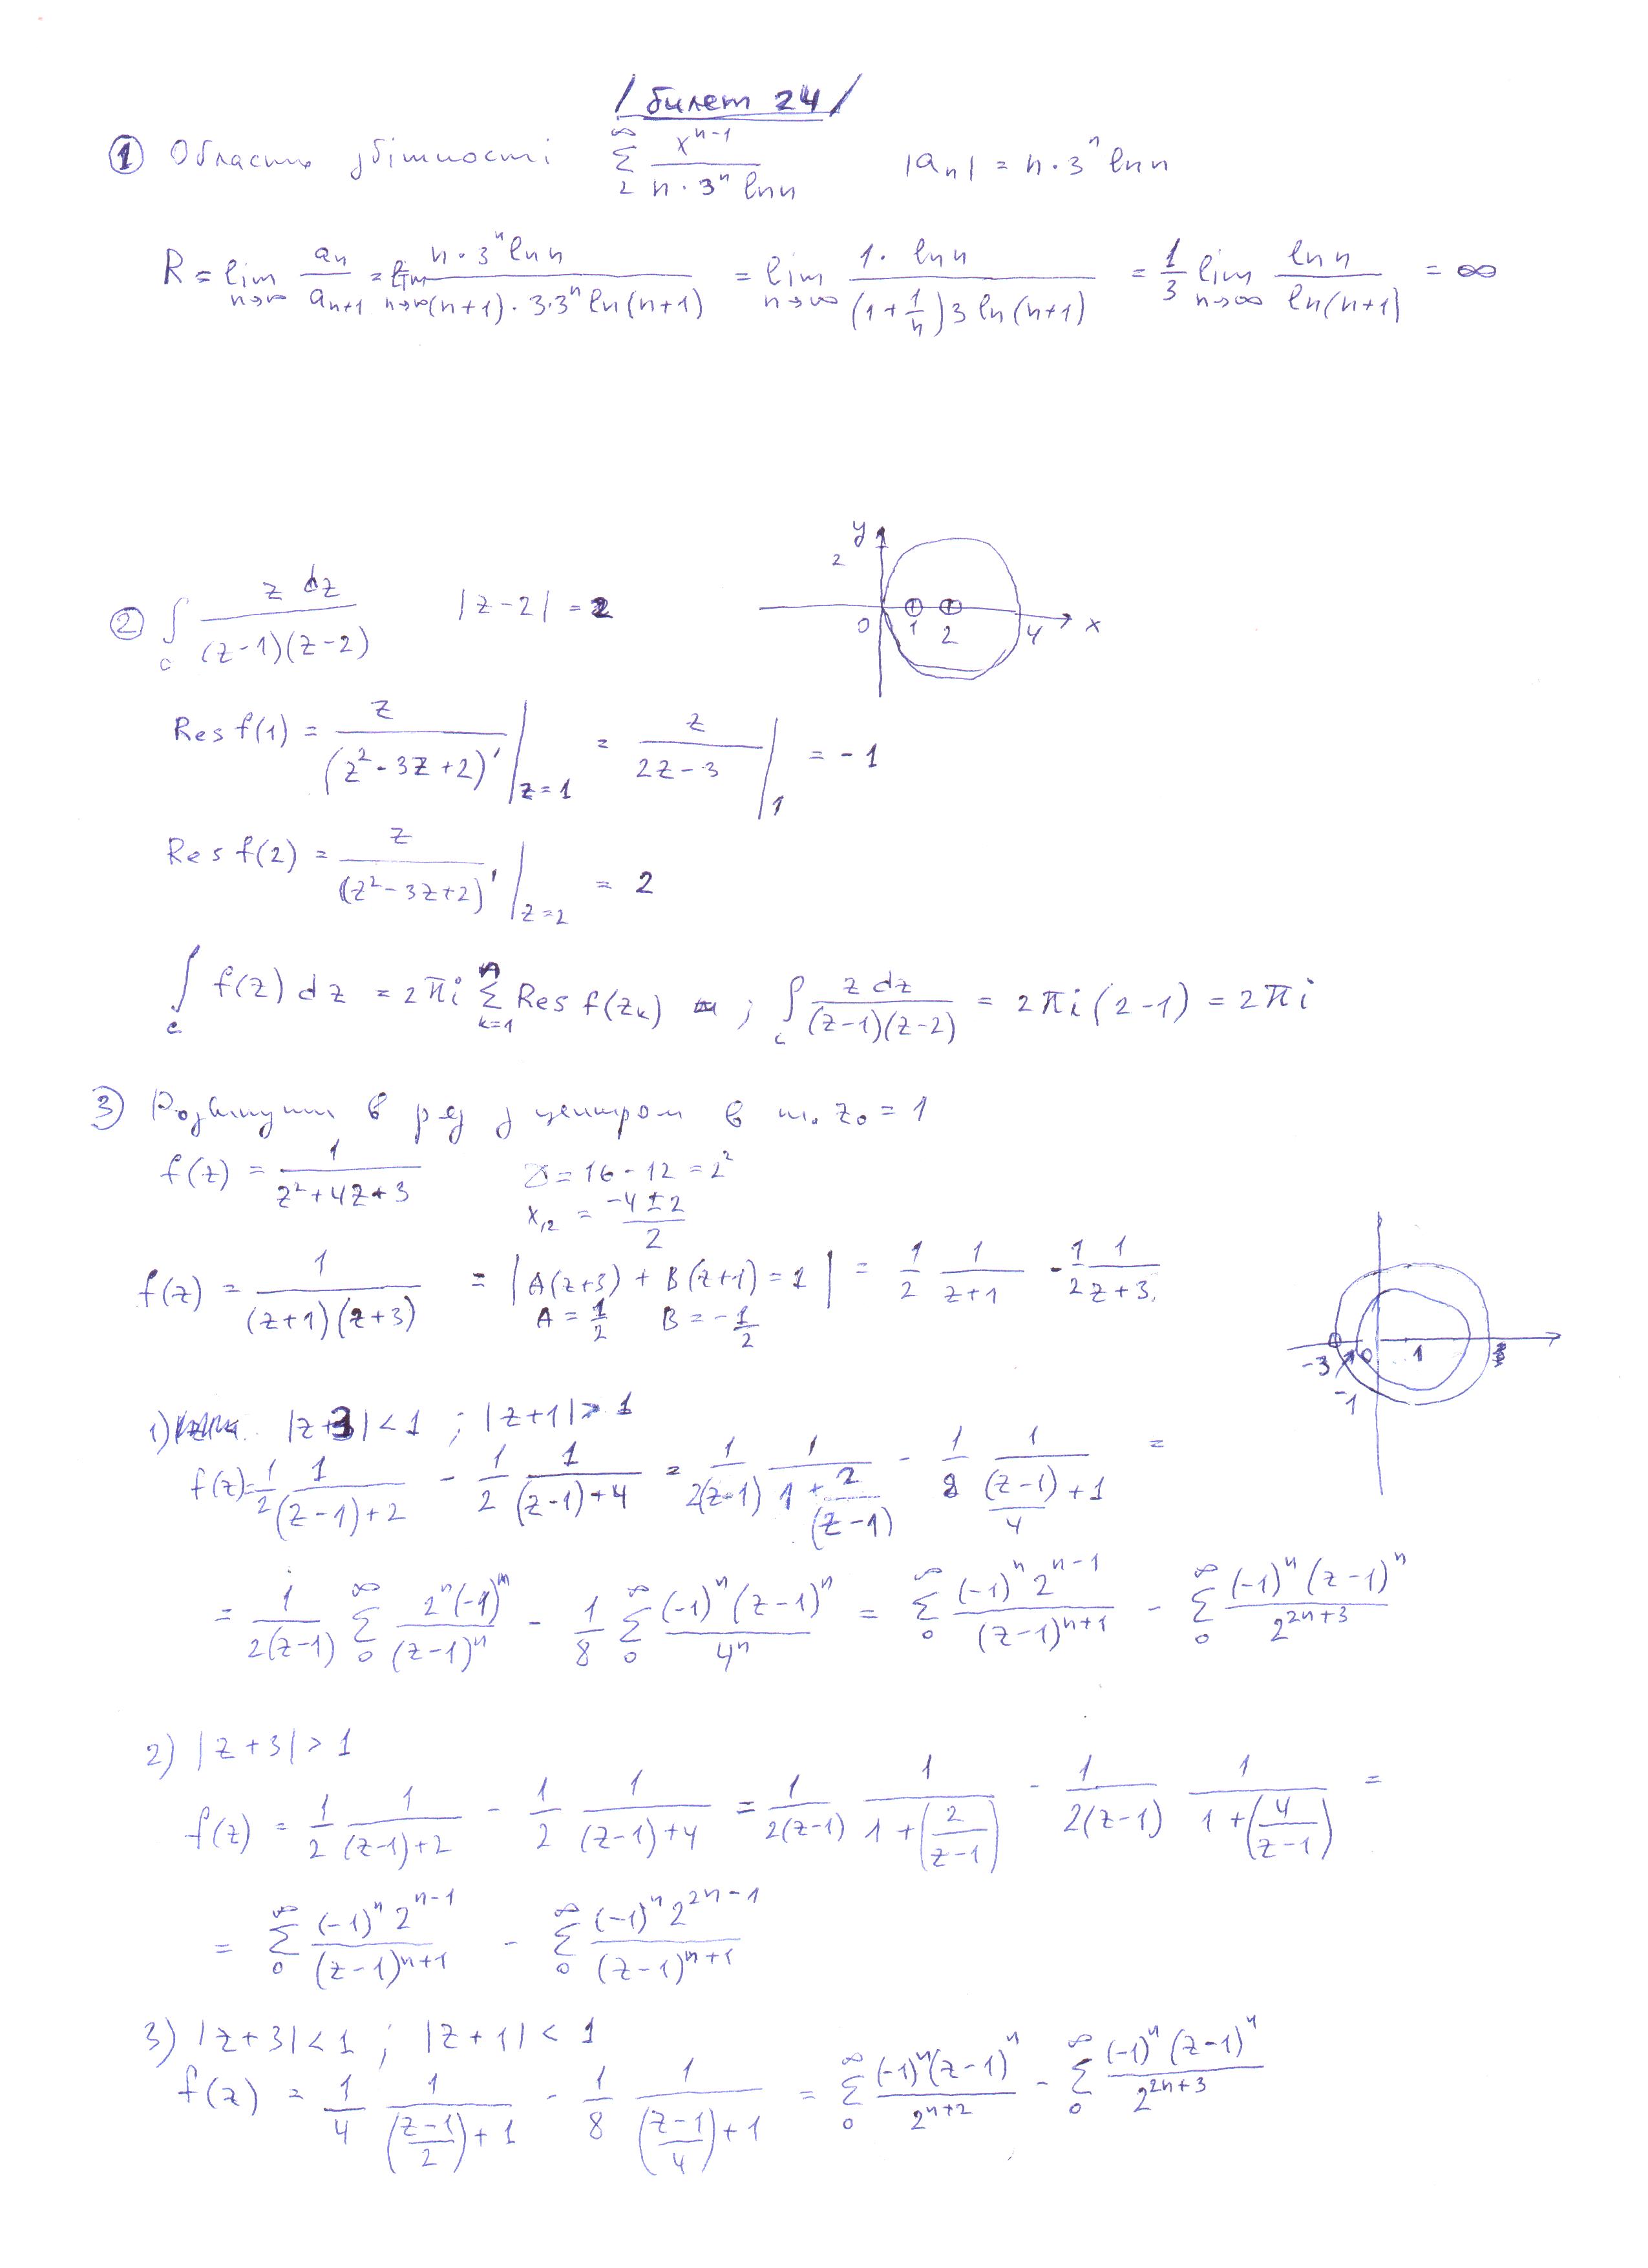 / билет 24 /
① Область збіжності ∑_2^∞ x^{n-1}/(n·3^n ln n)   |a_n| = n·3^n ln n
R = lim_{n→∞} a_n/a_{n+1} = lim_{n→∞} n·3^n ln n/((n+1)·3·3^n ln(n+1)) = lim_{n→∞} 1·ln n/((1+1/n)3 ln(n+1)) = 1/3 lim_{n→∞} ln n/ln(n+1) = ∞
y
2
0 1 2 4 x
② ∫_c z dz/((z-1)(z-2))   |z-2| = 2
Res f(1) = z/(z²-3z+2)' |_{z=1} = z/(2z-3) |_1 = -1
Res f(2) = z/((z²-3z+2)' |_{z=2} = 2
∫_c f(z) dz = 2πi ∑_{k=1}^n Res f(z_k) ; ∫_c z dz/((z-1)(z-2)) = 2πi(2-1) = 2πi
3) Розвинути в ряд з центром в т. z₀ = 1
f(z) = 1/(z²+4z+3)   D = 16-12 = 2²
x_{12} = (-4±2)/2
f(z) = 1/((z+1)(z+3)) = | A(z+3) + B(z+1) = 1 | = 1/2 1/(z+1) - 1/2 1/(z+3)
A = 1/2   B = -1/2
-3 0 1
-1
1) |z+3| < 1 ; |z+1| > 1
f(z) = 1/2 1/((z-1)+2) - 1/2 1/((z-1)+4) = 1/(2(z-1)) 1/(1+2/(z-1)) - 1/8 1/((z-1)/4+1) =
= 1/(2(z-1)) ∑_0^∞ 2^n(-1)^n/(z-1)^n - 1/8 ∑_0^∞ (-1)^n(z-1)^n/4^n = ∑_0^∞ (-1)^n 2^{n-1}/(z-1)^{n+1} - ∑_0^∞ (-1)^n(z-1)^n/2^{2n+3}
2) |z+3| > 1
f(z) = 1/2 1/((z-1)+2) - 1/2 1/((z-1)+4) = 1/(2(z-1)) 1/(1+(2/(z-1))) - 1/(2(z-1)) 1/(1+(4/(z-1))) =
= ∑_0^∞ (-1)^n 2^{n-1}/(z-1)^{n+1} - ∑_0^∞ (-1)^n 2^{2n-1}/(z-1)^{n+1}
3) |z+3| < 1 ; |z+1| < 1
f(z) = 1/4 1/(((z-1)/2)+1) - 1/8 1/(((z-1)/4)+1) = ∑_0^∞ (-1)^n(z-1)^n/2^{n+2} - ∑_0^∞ (-1)^n(z-1)^n/2^{2n+3}